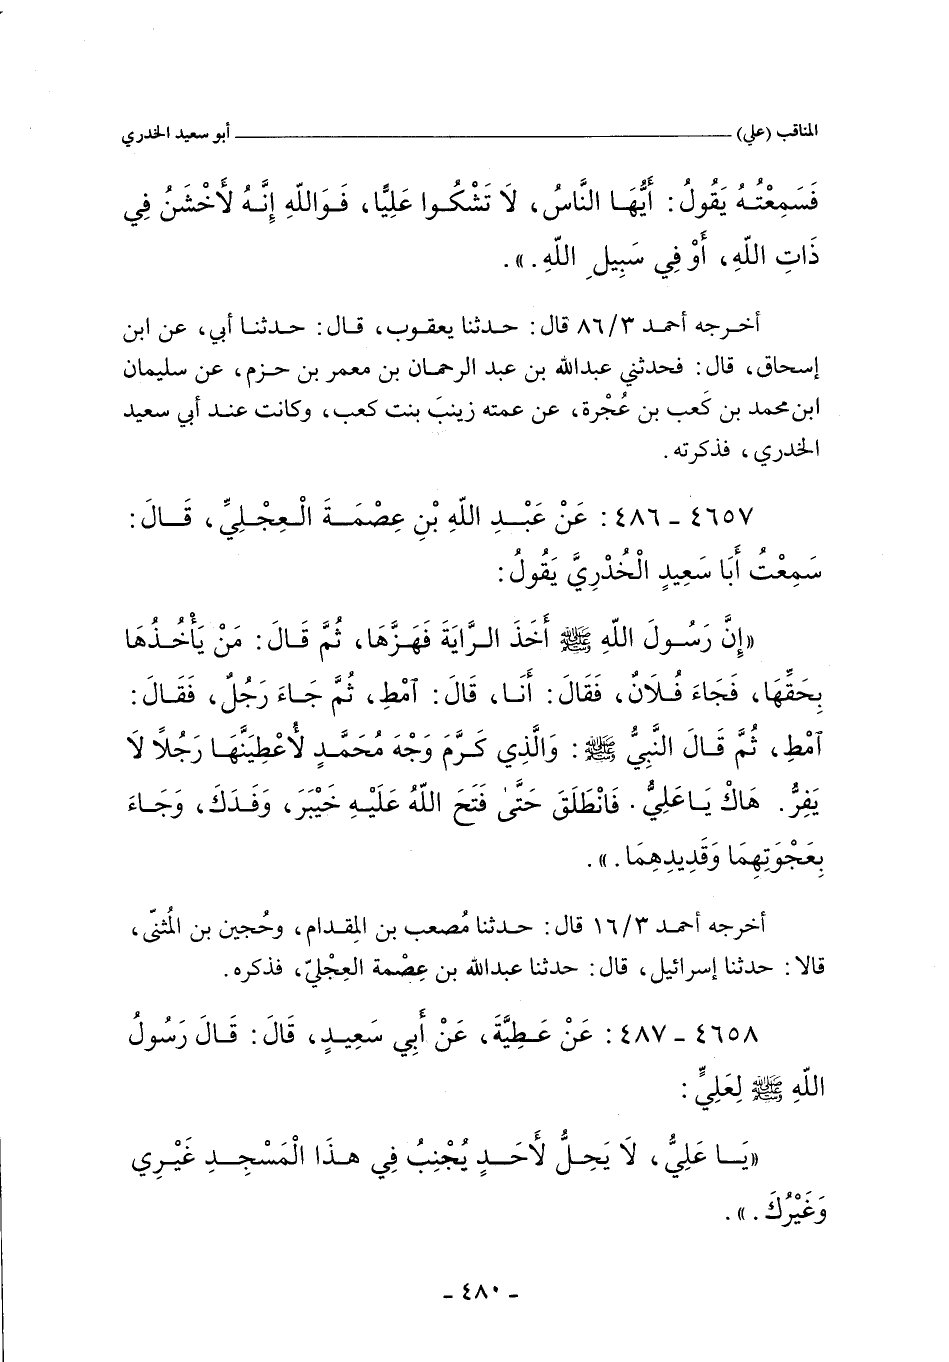 المناقب (علي) ــــــــــــــــــــ أبو سعيد الخدري
فَسَمِعْتُهُ يَقُولُ: أَيُّهَا النَّاسُ، لَا تَشْكُوا عَلِيًّا، فَوَاللّهِ إِنَّهُ لَأَخْشَنُ فِي
ذَاتِ اللّهِ، أَوْ فِي سَبِيلِ اللّهِ.».
أخرجه أحمد ٨٦/٣ قال: حدثنا يعقوب، قال: حدثنا أبي، عن ابن
إسحاق، قال: فحدثني عبدالله بن عبد الرحمان بن معمر بن حزم، عن سليمان
ابن محمد بن كَعب بن عُجْرة، عن عمته زينبَ بنت كعب، وكانت عند أبي سعيد
الخدري، فذكرته.
٤٦٥٧ - ٤٨٦: عَنْ عَبْدِ اللّهِ بْنِ عِصْمَةَ الْعِجْلِيِّ، قَالَ:
سَمِعْتُ أَبَا سَعِيدٍ الْخُدْرِيَّ يَقُولُ:
«إِنَّ رَسُولَ اللّهِ ﷺ أَخَذَ الرَّايَةَ فَهَزَّهَا، ثُمَّ قَالَ: مَنْ يَأْخُذُهَا
بِحَقِّهَا، فَجَاءَ فُلَانٌ، فَقَالَ: أَنَا، قَالَ: آمْطِ، ثُمَّ جَاءَ رَجُلٌ، فَقَالَ:
آمْطِ، ثُمَّ قَالَ النَّبِيُّ ﷺ: وَالَّذِي كَرَّمَ وَجْهَ مُحَمَّدٍ لَأُعْطِيَنَّهَا رَجُلاً لَا
يَفِرُّ. هَاكْ يَاعَلِيُّ. فَانْطَلَقَ حَتَّى فَتَحَ اللّهُ عَلَيْهِ خَيْبَرَ، وَفَدَكَ، وَجَاءَ
بِعَجْوَتِهِمَا وَقَدِيدِهِمَا.».
أخرجه أحمد ١٦/٣ قال: حدثنا مُصعب بن المِقدام، وحُجين بن المُثنىّ،
قالا: حدثنا إسرائيل، قال: حدثنا عبدالله بن عِصْمة العِجْليّ، فذكره.
٤٦٥٨ - ٤٨٧: عَنْ عَطِيَّةَ، عَنْ أَبِي سَعِيدٍ، قَالَ: قَالَ رَسُولُ
اللّهِ ﷺ لِعَلِيٍّ:
«يَا عَلِيُّ، لَا يَحِلُّ لَأَحَدٍ يُجْنِبُ فِي هذَا الْمَسْجِدِ غَيْرِي
وَغَيْرُكَ.».
- ٤٨٠ -